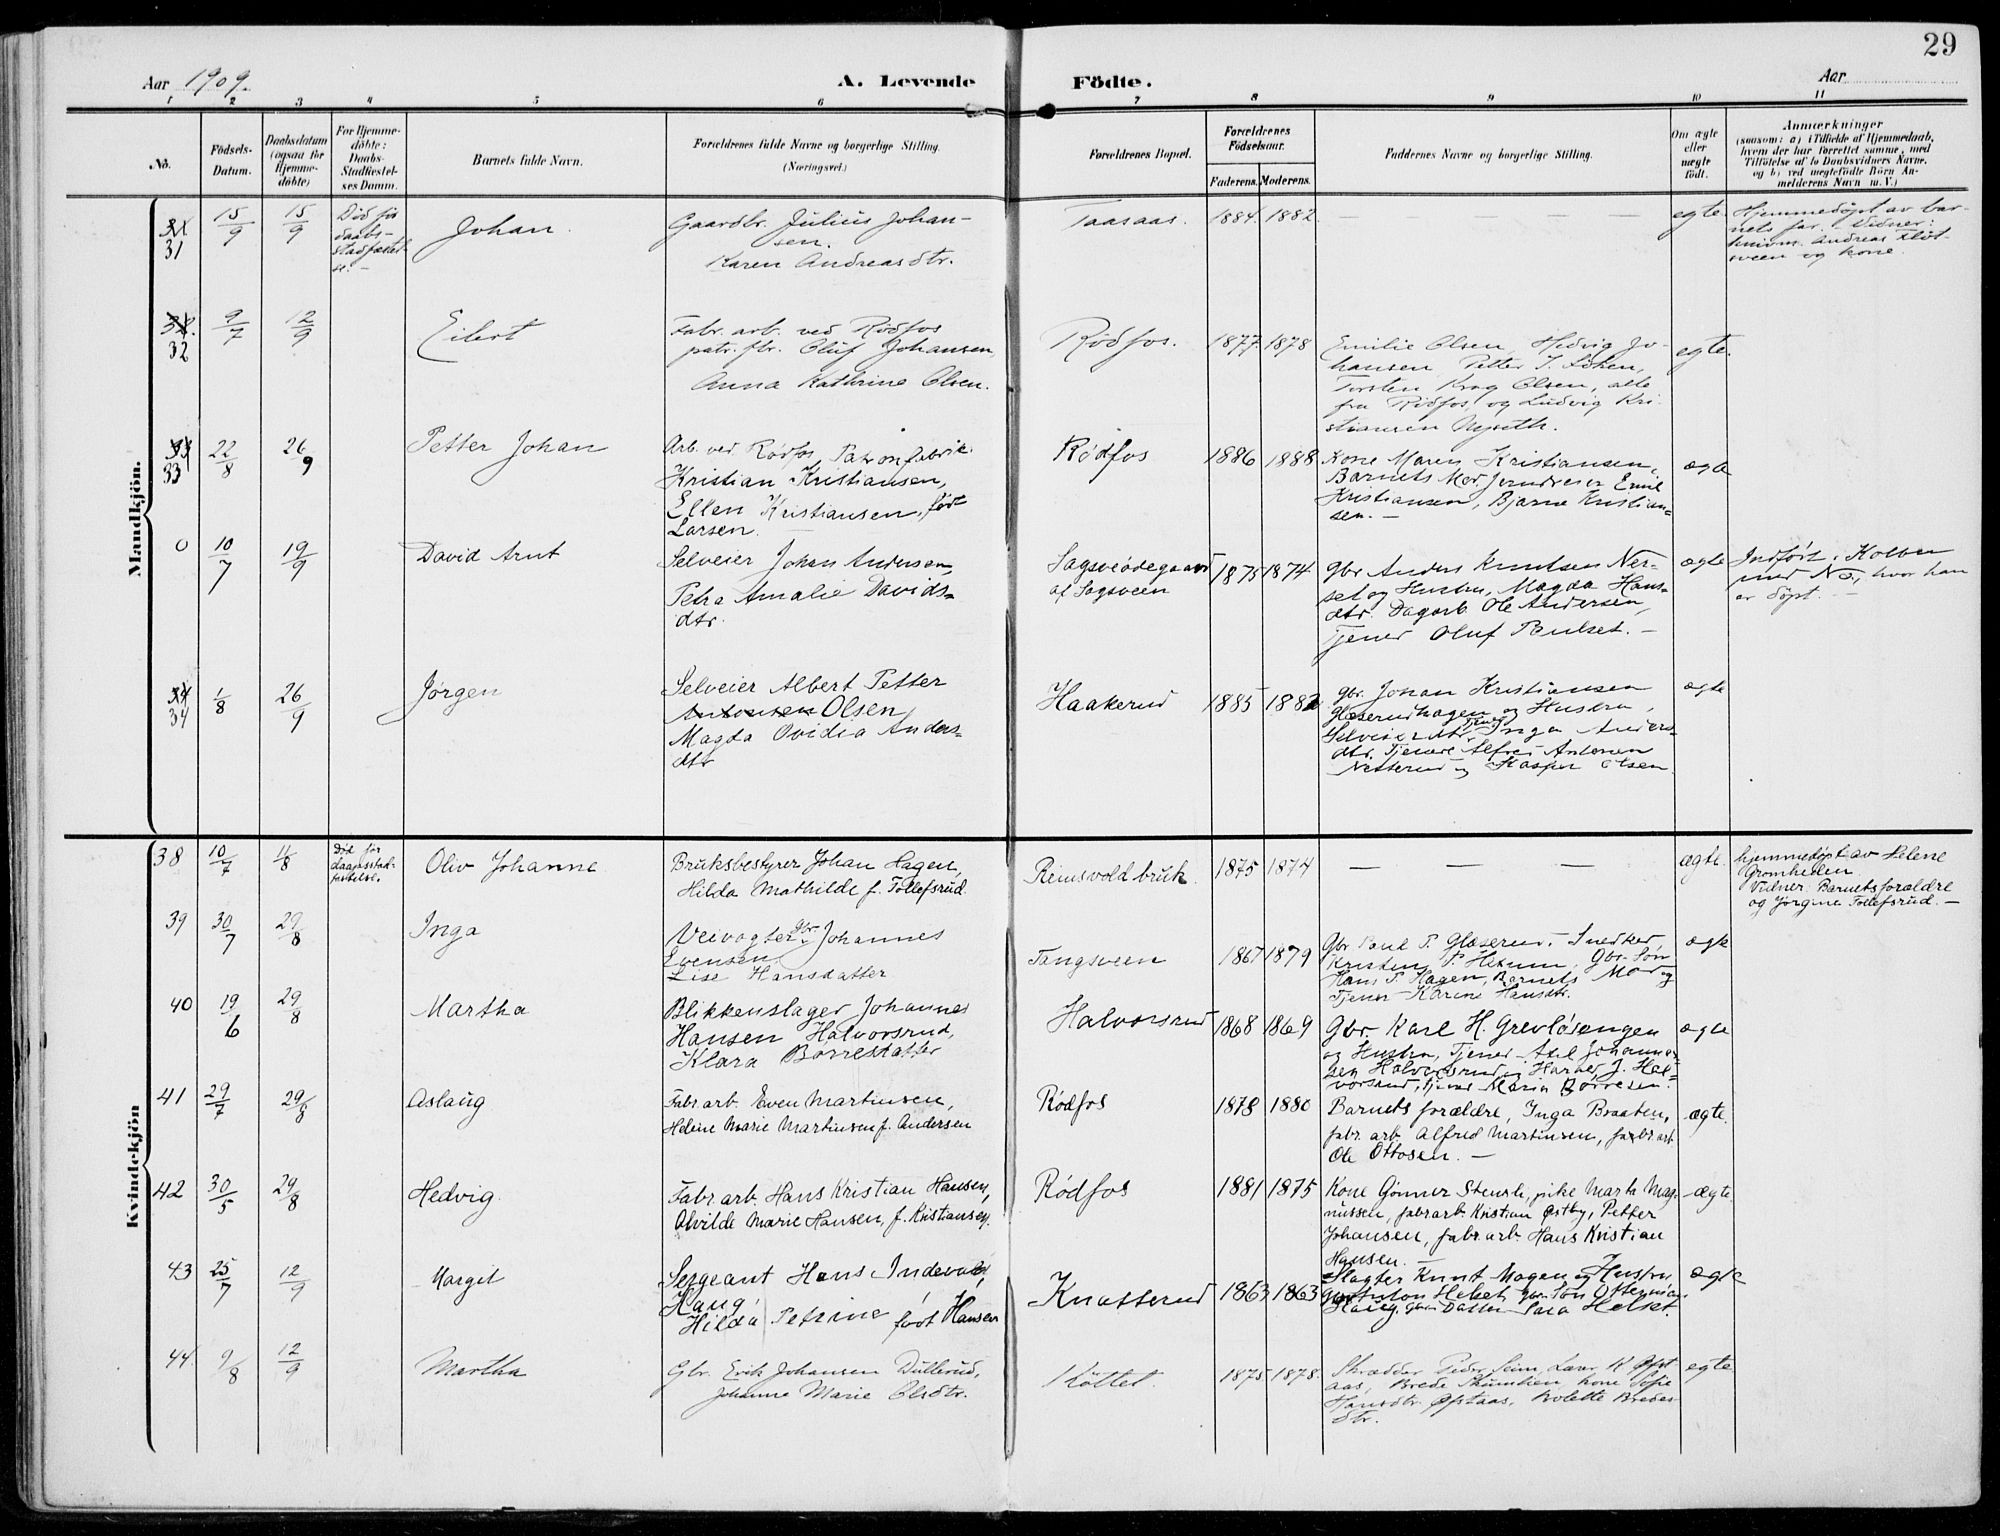 29
Aar 1909.
A. Levende Födte.
Aar
1 2 3 4 5 6 7 8 9 10 11
No.
Födsels-
Datum.
Daabsdatum
(ogsaa for
Hjemme-
döbte)
For Hjemme-
döbte:
Daabs-
Stadfestel-
ses Datum.
Barnets fulde Navn.
Forældrenes fulde Navne og borgerlige Stilling.
(Næringsvei.)
Forældrenes Bopæl.
Forældrenes
Födselsaar.
Faderens. Moderens.
Faddernes Navne og borgerlige Stilling.
Om ægte
eller
uægte
födt.
Anmærkninger
(saasom: a) i Tilfælde af Hjemmedaab,
hvem der har forrettet samme, med
Tilföielse af to Daabsvidners Navne,
og b) ved uegtefödte Börn An-
melderens Navn m. V.)
Mandkjön.
31
15/9
15/9
Död før
daabs-
stadfæstel-
se. -
Johan.
Gaardbr. Julius Johan-
sen.
Karen Andreasdtr.
Taasaas.
1884. 1882.
egte
Hjemmedøpt av bar-
nets far. Vidner:
Andreas Fløt-
sveen og kone.
32
9/7
12/9
Eilert
Fabr. arb. ved Rødfos
patr. fbr. Oluf Johansen,
Anna Kathrine Olsen.
Rødfos.
1877. 1878
Emilie Olsen, Hedvig Jo-
hansen Petter J.
Torsten Krog Olsen, alle
fra Rødfos, og Ludvig Kri-
stiansen
egte.
33
22/8
26/9
Petter Johan
Arb. ved Rødfos Patronfabrik
Kristian Kristiansen,
Ellen Kristiansen, født
Larsen.
Rødfos
1886 1888
Kone Maren Kristiansen,
Barnets Mor, Emil
Kristiansen, Bjarne Kristian-
sen. -
ægte
0
10/7
19/9
David Arnt
Selveier Johan Andersen,
Petra Amalie Davids-
dtr.
Sagsveødegaard
af Sagsveen
1875 1874
Gbr Anders Knutsen Ner-
set og Hustru, Magda Hans-
dtr. Dagarb. Ole Andersen,
Tjener Oluf Paulset. -
ægte
Indført i Kolbu
med No, hvor han
er døpt. -
34
1/8
26/9
Jørgen
Selveier Albert Petter
Antonsen Olsen,
Magda Ovidia Anders-
dtr
Haakerud
1885 1882
Gbr. Johan Kristiansen
Glæserudhagen og Hustru,
Selveier dtr Tjener Inga Anders-
dtr. Tjenere Alfred Antonsen
Netterud og Kasper Olsen.
ægte
Kvindekjön
38
10/7
11/8
Död før
daapsstad-
festelse.
Oliv Johanne
Bruksbestyrer Johan Hagen,
Hilda Mathilde f. Tollefsrud
Reinsvold bruk.
1875 1874
ægte.
hjemmedøpt av Helene
Gromheden
Vidner: Barnets forældre
og Jørgine Tollefsrud. -
39
30/7
29/8
Inga
Veivogter gbr. Johannes
Evensen
Lise Hansdatter
Tangsveen
1867 1879
Gbr Paul P. Glæserud. Snedker,
Kristen P. Hexum, Gbr. Søn
Hans P. Hagen, Barnets Mor og
Tjener Karine Hansdtr.
ægte
40
19/6
29/8
Martha
Blikkenslager Johannes
Hansen Halvorsrud,
Klara Børresdatter
Halvorsrud
1868 1869
Gbr Karl H. Grevløsengen
og Hustru, Tjener Axel Johannes-
sen Halvorsrud, Harald J. Hal-
vorsrud, tjener Maria Børresen.
ægte
41
29/7
29/8
Aslaug
Fabr. arb. Even Martinsen,
Helene Marie Martinsen f. Andersen
Rødfos
1878 1880
Barnets forældre, Inga Braaten,
fabr. arb. Alfred Martinsen, fabr. arb.
Ole Ottosen. -
ægte.
42
30/5
29/8
Hedvig.
Fabr arb. Hans Kristian Hansen,
Olvilde Marie Hansen, f. Kristiansen.
Rødfos
1881 1875
Kone Gunner Stensli, pike Marta Mag-
nussen, fabr arb. Kristian Østby, Petter
Johansen, fabr. arb. Hans Kristian
Hansen. -
ægte
43
25/7
12/9
Margit
Sergeant Hans Indevald
Haug,
Hilda Petrine født Hansen
Knatterud
1863 1863
Slagter Knut Mogen og Hustru
Gbr Anton Helset, gbr. Søn
Haug, gbr. Datter Sara Helset.
ægte
44.
9/8
12/9
Martha
Gbr. Erik Johansen Dullerud,
Johanne Marie Olsdtr.
Köttet.
1875 1878.
Skrædder Peder Seim, Lærer K. Øfst-
aas, Brede kone Sofie
Hansdtr. Øfstaas, Bolette Bredes-
dtr.
egte